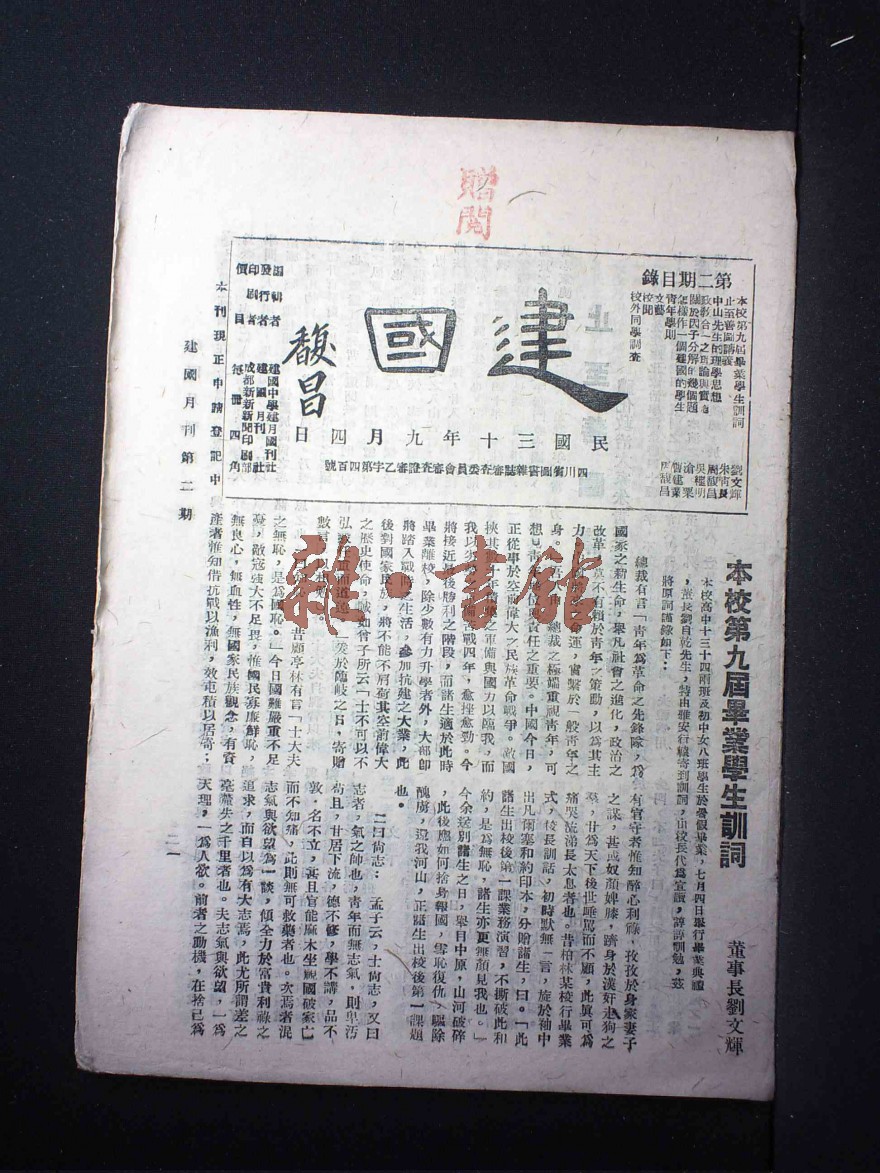 贈閱
第二期目錄
本校第九屆畢業學生訓詞
劉文輝
止至善圖講義
中山先生的理學思想
周馥昌
政教合一之理論與實
吳耀明
關於因子分解的幾個題
怎樣作一個建國的學生
青年學則
文藝
校聞
校外同學調查
建國
馥昌
民國三十年九月四日
四川省圖書雜誌審查委員會審查證審乙字第四百號
編輯者 建國中學建國月刊社
發行者 建國月刊社
印刷者 成都新新新聞印刷部
價目 每冊四角
本刊現正申請登記中
建國月刊第二期
本校第九屆畢業學生訓詞
董事長劉文輝
本校高中十三十四兩班及初中女八班學生於暑假畢業，七月四日舉行畢業典禮
，董長劉自乾先生，特由雅安行轅寄到訓詞，由校長代為宣讀，諄諄訓勉，茲
將原詞謹錄如下：
總裁有言「青年為革命之先鋒隊，為
國家之新生命，舉凡社會之進化，政治之
改革，莫不有賴於青年之策動，以為其主
力
運，實繫於一般青年之
身。
總裁之極端重視青年，可
想見青年
責任之重要。中國今日，
正從事於空前偉大之民族革命戰爭。敵國
挾其
年積
之軍備與國力以臨我，而
我以
戰四年，愈挫愈勁。今
將接近最後勝利之階段，而諸生適於此時
畢業離校，除少數有力升學者外，大部即
將踏入戰時
生活，參加抗建之大業，此
後對國家民族，將不能不肩荷其空前偉大
之歷史使命，誠如曾子所云「士不可以不
弘毅，任重而道遠
」矣於臨歧之日，寄贈
數言，以相勉
昔顧亭林有言「士大夫
之無恥，是為國恥。」今日國難嚴重不足
憂，敵寇強大不足畏，惟國民寡廉鮮恥，
無良心，無血性，無國家民族觀念，有資
產者惟知借抗戰以漁利，效屯積以居奇；
有官守者惟知醉心利祿，孜孜於身家妻子
之謀，甚或奴顏婢膝，躋身於漢奸走狗之
羣，甘為天下後世唾罵而不顧，此真可為
痛哭流涕長太息者也。昔柏林某校行畢業
式，校長訓話，初時默無一言，旋於袖中
出凡爾塞和約印本，分贈諸生，曰。「此
諸生出校後第一課業務演習，不撕破此和
約，是為無恥，諸生亦更無顏見我也。」
今余送別諸生之日，舉目中原，山河破碎
，此後應如何捨身報國，雪恥復仇，驅除
醜虜，還我河山，正諸生出校後第一課題
也。
二曰尚志：孟子云，士尚志，又曰
志者，氣之帥也，青年而無志氣，則卑污
苟且，甘居下流，德不修，學不講，品不
敦，名不立，甚且官能麻木坐視國破家亡
而不知痛，此則無可救藥者也。次焉者混
志氣與欲望為一談，傾全力於富貴利祿之
追求，而自以為有大志焉，此尤所謂差之
毫釐失之千里者也。夫志氣與欲望，一為
天理，一為人欲。前者之動機，在捨己為
雜·書館